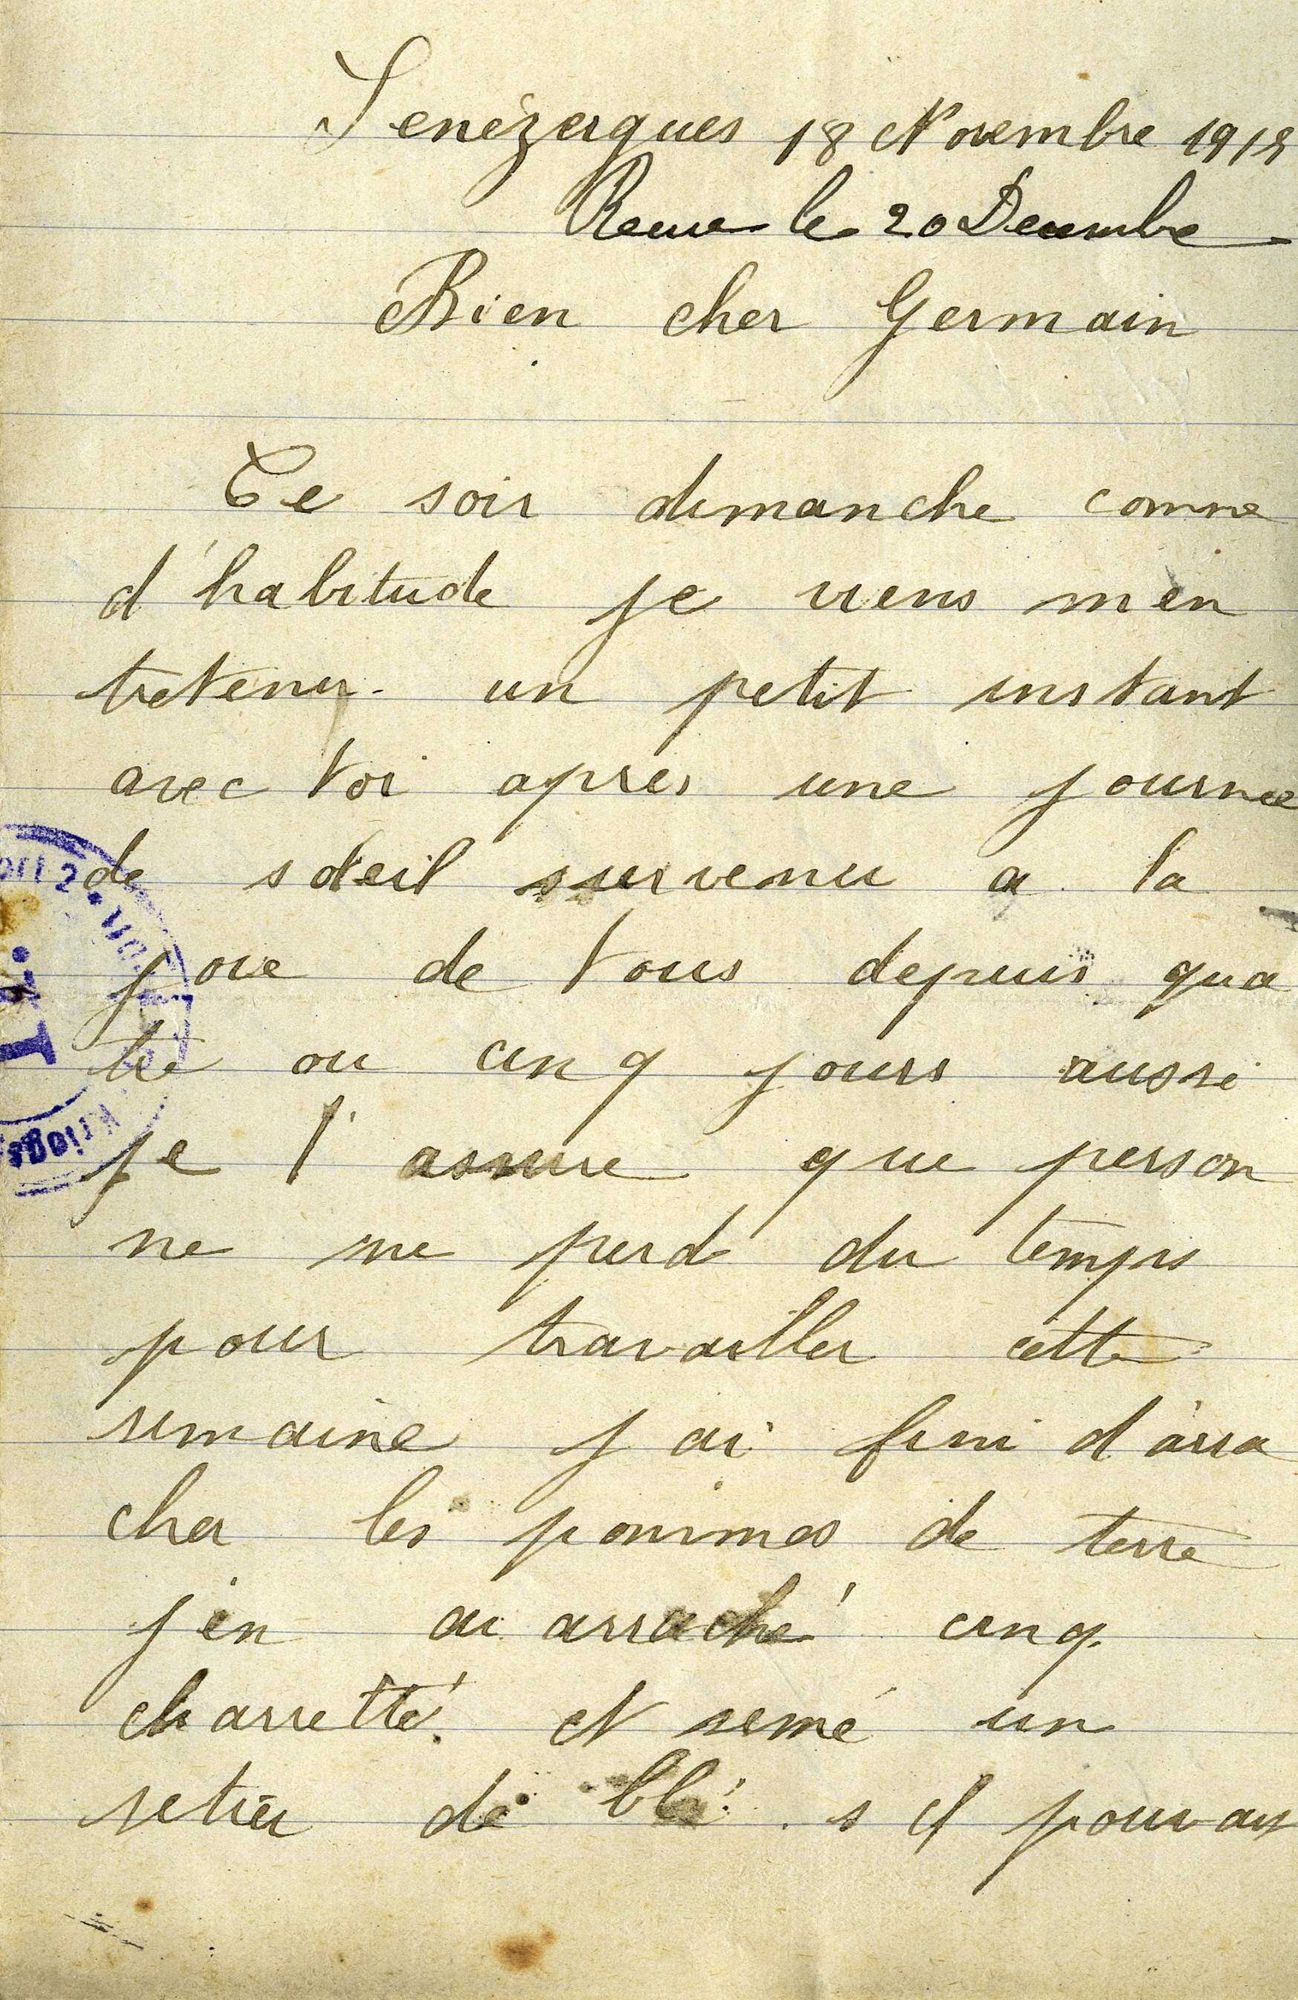 Senezergues 18 Novembre 191
Recue le 20 Decembre
Bien cher Germain
Ce soir dimanche comme
d'habitude je viens m'en
tretenir un petit instant
avec toi apres une journee
de soleil survenu a la
joie de tous depuis qua
tre ou cinq jours aussi
je t'assure que person
ne ne perd du temps
pour travailler cette
semaine j'ai fini d'arra
cher les pommes de terre
j'en ai arraché cinq
charretté et semé un
setier de blé. s il pouvait